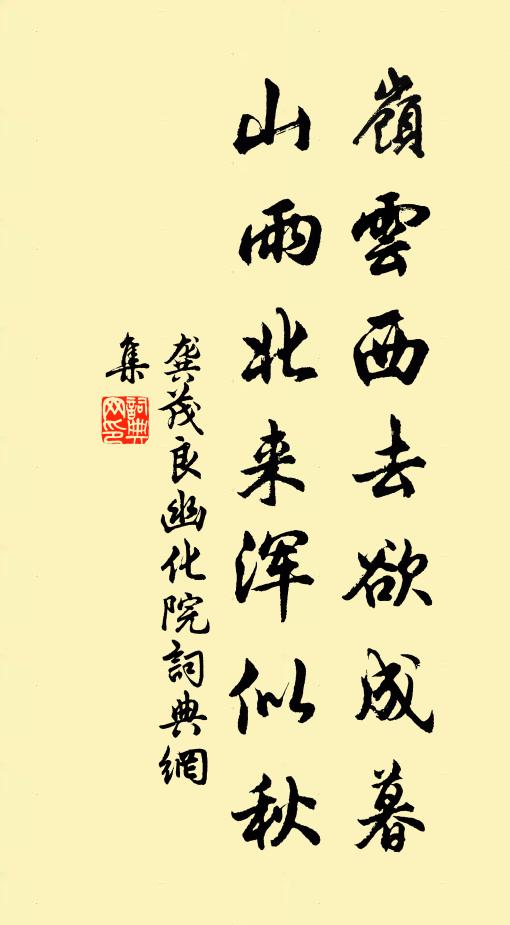 嶺雲西去欲成暮
山雨北来浑似秋
龚茂良幽化院詞典網
集
詞典
网印